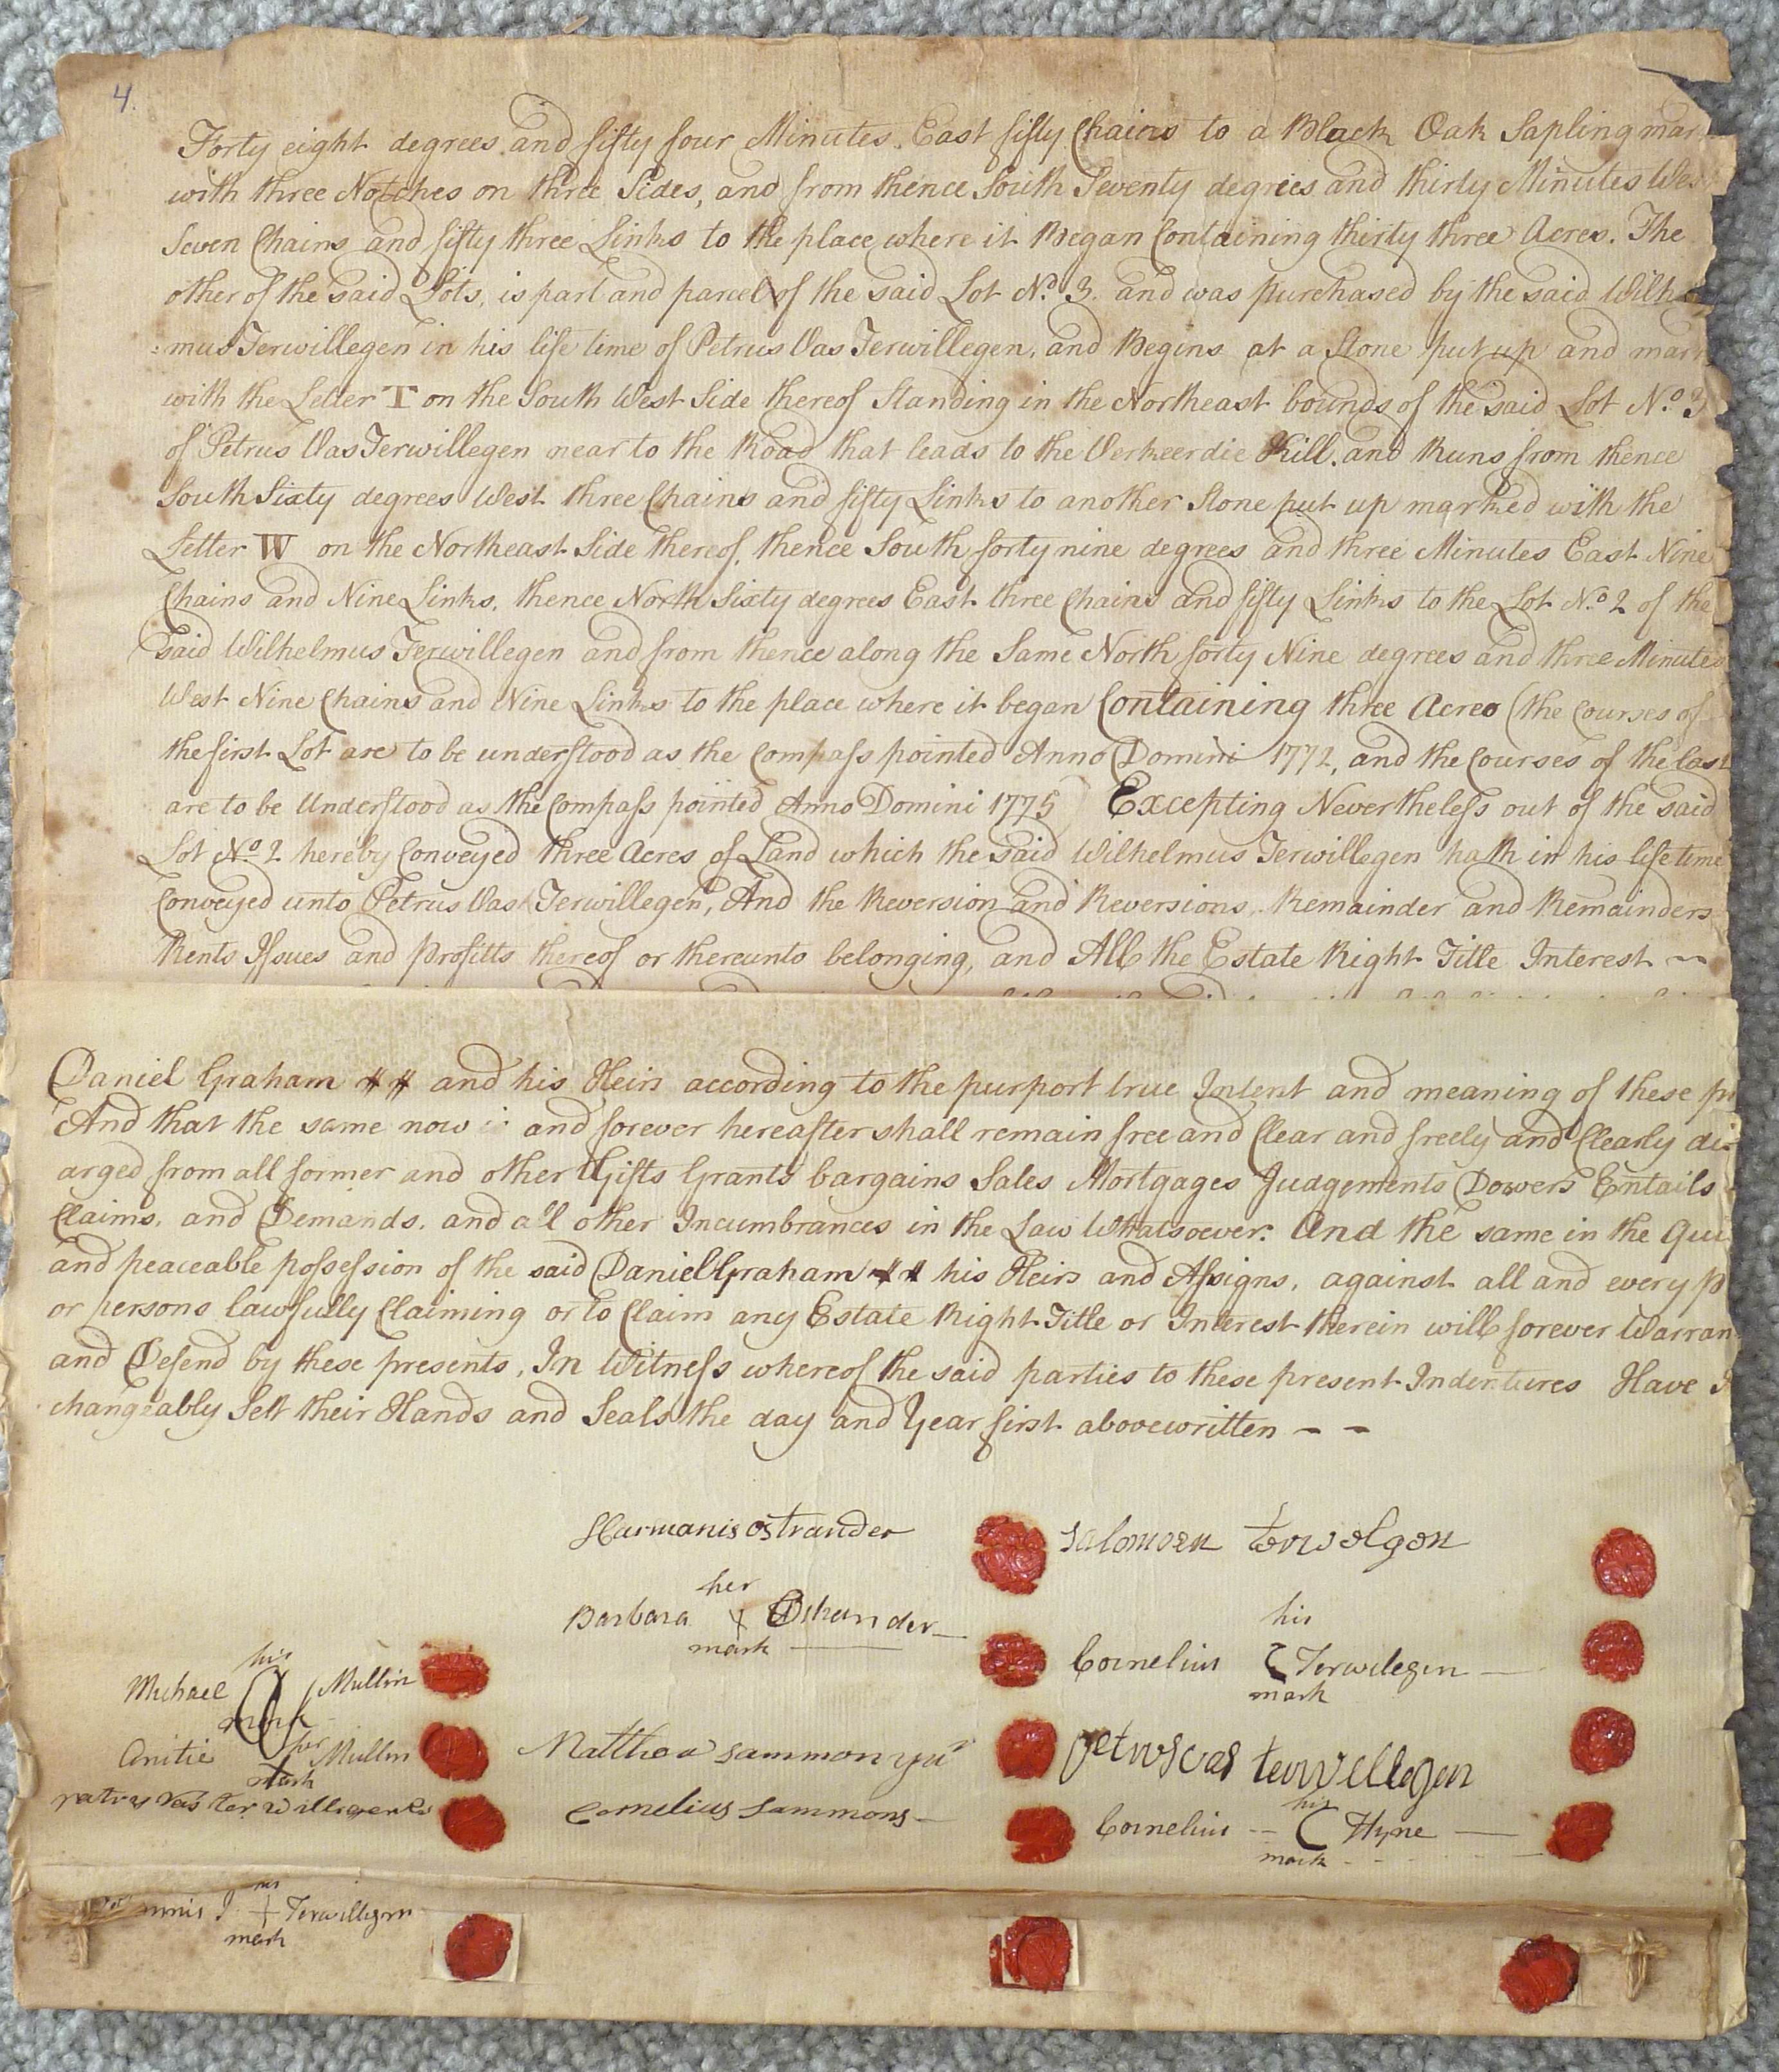 4.
Forty eight degrees and fifty four Minutes East fifty Chains to a Black Oak Sapling mar
with three Notches on three Sides, and from thence South Seventy degrees and thirty Minutes West
Seven Chains and fifty three Links to the place where it Began Containing thirty three Acres. The
other of the said Lots, is part and parcel of the said Lot No. 3. and was purchased by the said Wilh
mus Terwillegen in his life time of Petrus Vas Terwillegen, and Begins at a Stone put up and mar
with the Letter T on the South West Side thereof Standing in the Northeast bounds of the said Lot No. 3
of Petrus Vas Terwillegen near to the Road that leads to the Verkeerdie Kill. and Runs from thence
South Sixty degrees West three Chains and fifty Links to another Stone put up marked with the
Letter W on the Northeast Side thereof, thence South forty nine degrees and three Minutes East Nine
Chains and Nine Links, thence North Sixty degrees East three Chains and fifty Links to the Lot No. 2 of the
said Wilhelmus Terwillegen and from thence along the Same North forty Nine degrees and three Minutes
West Nine Chains and Nine Links to the place where it began Containing three Acres (the Courses of
the first Lot are to be understood as the Compass pointed Anno Domini 1772, and the Courses of the last
are to be Understood as the Compass pointed Anno Domini 1775) Excepting Nevertheless out of the said
Lot No. 2 hereby Conveyed three Acres of Land which the said Wilhelmus Terwillegen hath in his life time
Conveyed unto Petrus Vas Terwillegen, And the Reversion and Reversions, Remainder and Remainders
Rents Issues and Profitts thereof or thereunto belonging, and All the Estate Right Title Interest
Daniel Graham and his Heirs according to the purport true Intent and meaning of these pr
And that the same now and forever hereafter shall remain free and Clear and freely and Clearly dis
arged from all former and other Gifts Grants bargains Sales Mortgages Judgements Dowers Entails
Claims, and Demands, and all other Incumbrances in the Law Whatsoever. And the same in the Qui
and peaceable possession of the said Daniel Graham his Heirs and Assigns, against all and every p
or persons lawfully Claiming or to Claim any Estate Right Title or Interest therein will forever Warran
and Defend by these presents, In Witness whereof the said parties to these present Indentures Have I
changeably Sett their Hands and Seals the day and Year first abovewritten - -
Harmanis ostrander
Salomon terwelgen
Barbara her mark Ostrander
Cornelius his mark Terwilegen
Michael his mark Mullin
Matthew sammon
petrus vas terwellegen
Anitie her mark Mullin
Cornelius Sammons
Cornelius his C mark Hyne
petrus vas terwilligen
mark Terwilligen